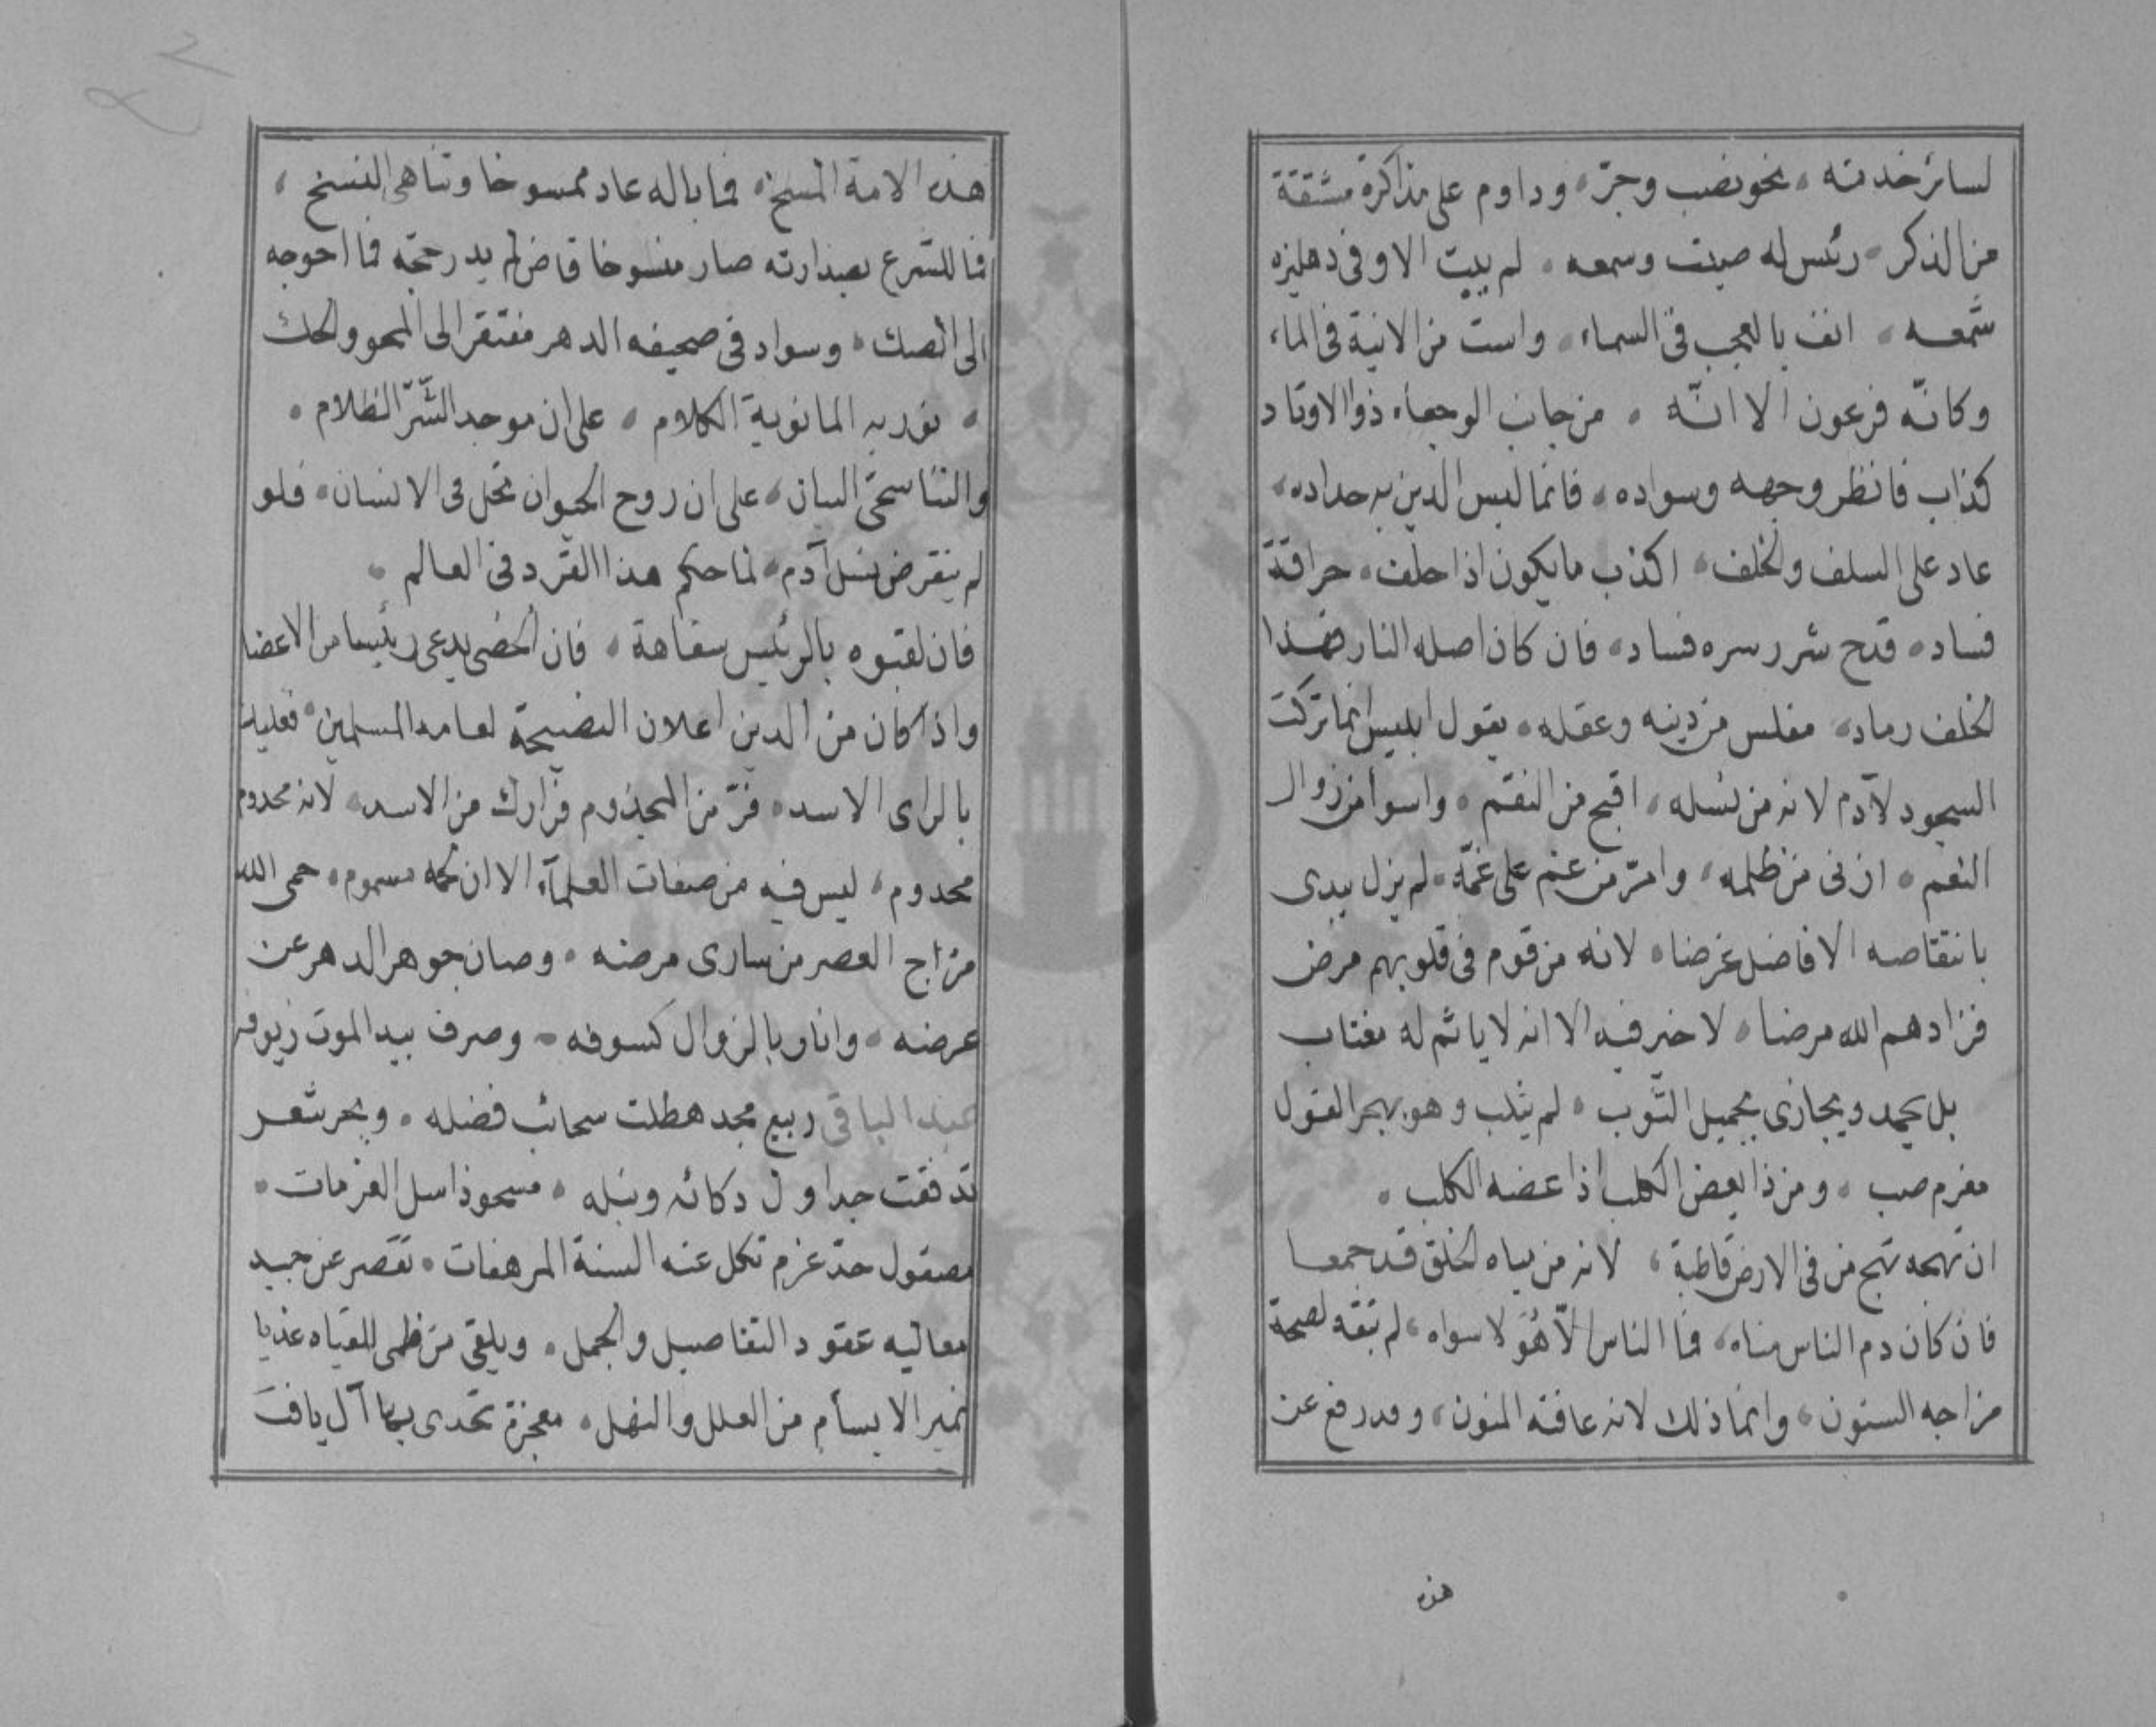 لسائر خدمته ، نحو نصب وجرّ ، وداوم على مذاكرة مشتقة
من الذكر ، رئس له صيت وسمعه ، لم يبت الا وفى دهليزه
شمعه ، انف بالعجب فى السماء ، واست من الانية فى الماء
وكانّه فرعون الا انّه ، من جانب الوجعاء ذو الاوتاد
كذاب فانظر وجهه وسواده ، فانما لبس الدين به حداده ،
عاد على السلف والخلف ، اكذب ما يكون اذا حلف ، حراقة
فساد ، قدح شرر سره فساد ، فان كان اصله النار فهذا
الخلف رماد ، مفلس من دينه وعقله ، يقول ابليس انما تركت
السجود لآدم لانه من نسله ، اقبح من النقم ، واسوأ من زوال
النعم ، از نى من ظلمه ، وامرّ من غم على غمّة ، لم يزل يبدى
بانتقاصه الافاضل غرضا ، لانه من قوم فى قلوبهم مرض
فزادهم الله مرضا ، لا خير فيه الا انه لا ياثم له مغتاب
بل يحمد ويجازى بجميل الثّوب ، لم يثلب وهو بهجر القول
مغرم صب ، ومن ذا يعض الكلب اذا عضه الكلب ،
ان تهجه تهج من فى الارض قاطبة ، لانه من مياه الخلق قد جمعا
فان كان دم الناس مناه ، فما الناس الّا هُوَ لا سواه ، لم تبقه لصحة
مزاجه السنون ، وانما ذلك لانه عافته المنون ، وقد رفع عن
هذه
هذه الامة المسخ ، فما باله عاد ممسوخا وتناهى النسخ ،
فما للشرع بصدارته صار منسوخا قاض لم يدر حجّه فما احوجه
الى الصك ، وسواد فى صحيفه الدهر مفتقر الى المحو والحك
، نور به المانوية الكلام ، على ان موجد الشّرّ الظلام ،
والتناسخىّ البيان ، على ان روح الحيوان تحل فى الانسان ، فلو
لم ينقرض نسل آدم ، لما حكم هذا القرد فى العالم ،
فان لقبوه بالرئيس سفاهة ، فان الخصى يدعى رئيسا من الاعضا
واذا كان من الدين اعلان النصيحة لعامه المسلمين ، فعليك
بالراى الاسد ، فرّ من المجذوم فرارك من الاسد ، لانه مجذوم
محدوم ، ليس فيه من صفات العلمآء الا ان لحمه مسموم ، حمى الله
مزاج العصر من سارى مرضه ، وصان جوهر الدهر عن
عرضه ، وانار بالزوال كسوفه ، وصرف بيد الموت زيوفه
عبد الباقى ربيع مجد هطلت سحائب فضله ، وبحر شعر
تدفقت جداول ذكائه ونبله ، مسحوذ اسل العزمات ،
مصقول حدّ عزم تكل عنه السنة المرهفات ، تقصر عن جيد
معاليه عقود التفاصيل والجمل ، ويلقى من ظمى للقياه عذبا
نميرا لا يسأم من العلل والنهل ، معجزة تحدى بها آل يافث